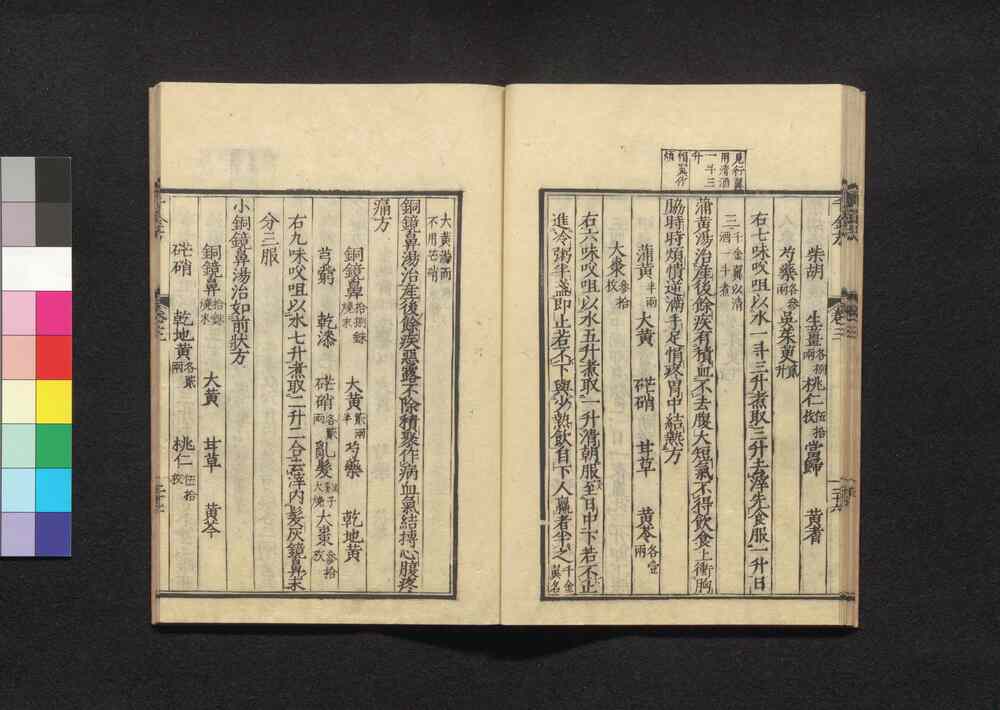 見行翼
用清酒
一斗三
升
悁翼作
煩
柴胡 生薑各捌兩 桃仁伍拾枚 當歸 黃耆
芍藥各參兩 吳茱萸貳升
右七味㕮咀以水一斗三升煮取三升去滓先食服一升日
三千金翼以清酒一斗煮
蒲黃湯治產後餘疾有積血不去腹大短氣不得飲食上衝胸
脇時時煩憒逆滿手足悁疼胃中結熱方
蒲黃半兩 大黃 芒硝 甘草 黃芩各壹兩
大棗參拾枚
右六味㕮咀以水五升煮取一升清朝服至日中下若不止
進冷粥半盞即止若不下與少熱飲自下人羸者半之千金翼名
大黃湯而不用芒硝
銅鏡鼻湯治產後餘疾惡露不除積聚作病血氣結搏心腹疼
痛方
銅鏡鼻拾捌銖燒末 大黃貳兩半 芍藥 乾地黃
芎藭 乾漆 芒硝各貳兩 亂髮雞子大燒 大棗參拾枚
右九味㕮咀以水七升煮取二升二合去滓內髮灰鏡鼻末
分三服
小銅鏡鼻湯治如前狀方
銅鏡鼻拾銖燒末 大黃 甘草 黃芩
芒硝 乾地黃各貳兩 桃仁伍拾枚